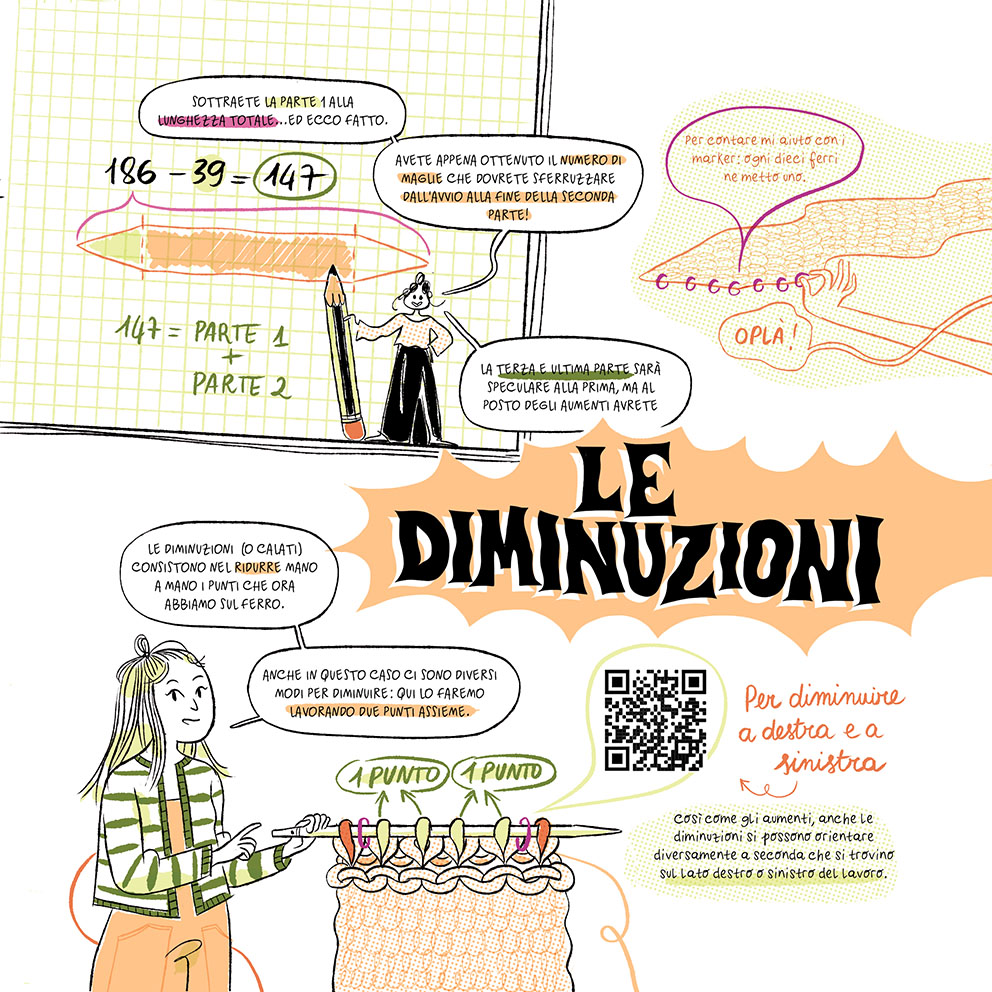 SOTTRAETE LA PARTE 1 ALLA
LUNGHEZZA TOTALE...ED ECCO FATTO.
AVETE APPENA OTTENUTO IL NUMERO DI
MAGLIE CHE DOVRETE SFERRUZZARE
DALL'AVVIO ALLA FINE DELLA SECONDA
PARTE!
186 - 39 = 147
147 = PARTE 1
+
PARTE 2
Per contare mi aiuto con i
marker: ogni dieci ferri
ne metto uno.
OPLÀ!
LA TERZA E ULTIMA PARTE SARÀ
SPECULARE ALLA PRIMA, MA AL
POSTO DEGLI AUMENTI AVRETE
LE
DIMINUZIONI
LE DIMINUZIONI (O CALATI)
CONSISTONO NEL RIDURRE MANO
A MANO I PUNTI CHE ORA
ABBIAMO SUL FERRO.
ANCHE IN QUESTO CASO CI SONO DIVERSI
MODI PER DIMINUIRE: QUI LO FAREMO
LAVORANDO DUE PUNTI ASSIEME.
1 PUNTO
1 PUNTO
Per diminuire
a destra e a
sinistra
Così come gli aumenti, anche le
diminuzioni si possono orientare
diversamente a seconda che si trovino
sul lato destro o sinistro del lavoro.